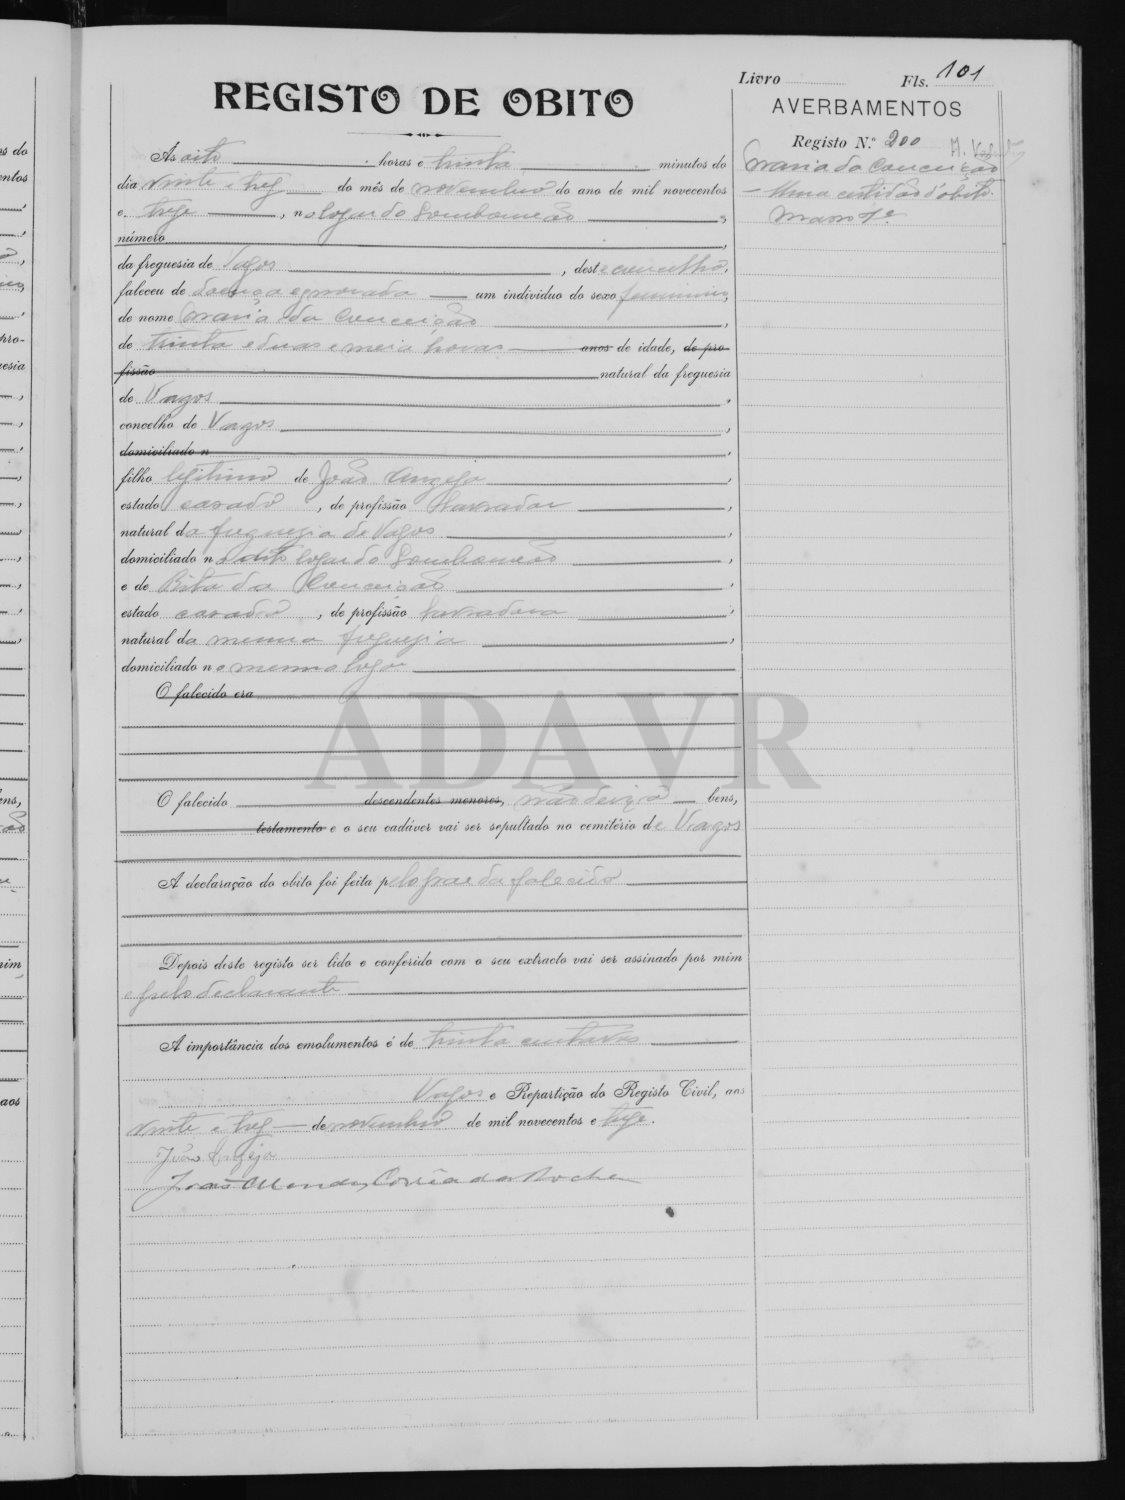 Livro Fls. 101
REGISTO DE OBITO
AVERBAMENTOS
Registo N.º 200
Maria da Conceição
— Uma certidão d'obito.
Às oito horas e trinta minutos do
dia vinte e trez do mês de novembro do ano de mil novecentos
e treze, no logar do Lombomeão,
número,
da freguesia de Vagos, deste concelho,
faleceu de doença ignorada um individuo do sexo feminino,
de nome Maria da Conceição,
de trinta e duas e meia horas anos de idade, de pro-
fissão natural da freguesia
de Vagos,
concelho de Vagos,
domiciliado n,
filho legitimo de João Angeja,
estado casado, de profissão lavrador,
natural da freguezia de Vagos,
domiciliado no dito logar do Lombomeão,
e de Rita da Conceição,
estado casada, de profissão lavradora,
natural da mesma freguezia,
domiciliado no mesmo logar
O falecido era
ADAVR
O falecido descendentes menores, não deixa bens,
testamento e o seu cadáver vai ser sepultado no cemitério de Vagos
A declaração do obito foi feita pelo pae da falecida
Depois deste registo ser lido e conferido com o seu extracto vai ser assinado por mim
e pelo declarante
A importância dos emolumentos é de trinta centavos
Vagos e Repartição do Registo Civil, aos
vinte e trez de novembro de mil novecentos e treze.
João Angeja
João Mendes Corrêa da Rocha